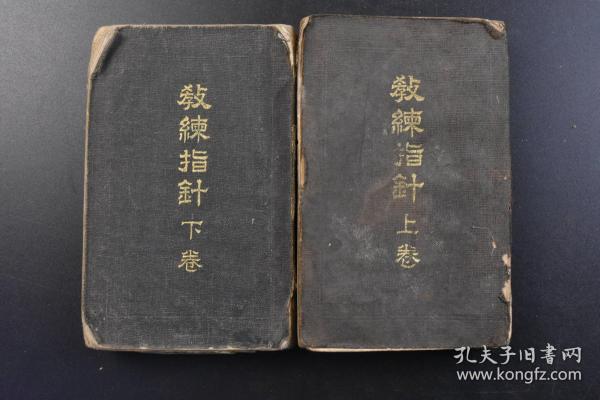 教練指針 下卷
教練指針 上卷
孔夫子旧书网
www.kongfz.com